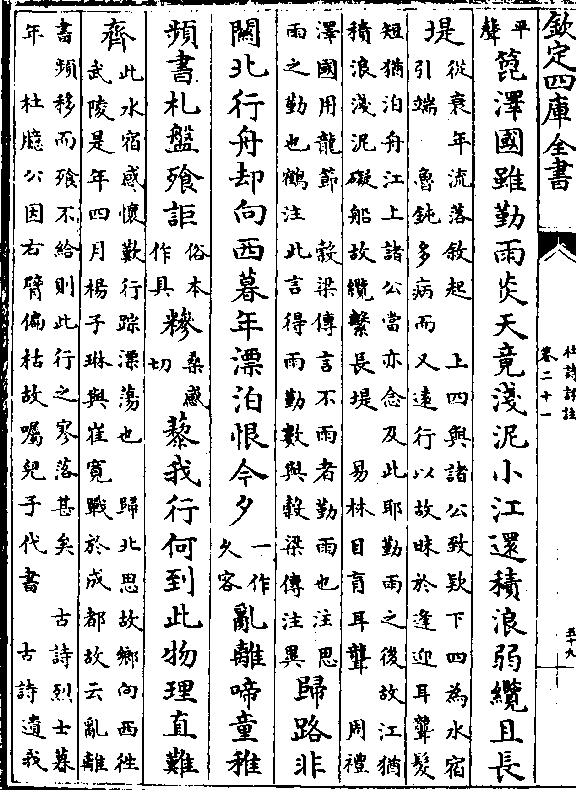 欽定四庫全書
杜詩詳註
卷二十一
五十九
平聲篦澤國雖勤雨炎天竟淺泥小江還積浪弱纜且長
堤
從衰年流落敘起　上四與諸公致欵下四為水宿
引端　魯鈍多病而又遠行以故昧於逢迎耳聾髮
短猶泊舟江上諸公當亦念及此耶勤雨之後故江猶
積浪淺泥礙船故纜繫長堤　易林目盲耳聾　周禮
澤國用龍節　榖梁傳言不雨者勤雨也注思
雨之勤也鶴注此言得雨勤數與榖梁傳注異
歸路非
關北行舟却向西暮年漂泊恨今夕一作久客亂離啼童稚
頻書札盤飧詎俗本作具糝桑感切藜我行何到此物理直難
齊
此水宿感懷歎行踪漂蕩也　歸北思故鄉向西徃
武陵是年四月楊子琳與崔寛戰於成都故云亂離
書頻移而飧不給則此行之寥落甚矣　古詩烈士暮
年　杜臆公因右臂偏枯故囑兒子代書　古詩遺我